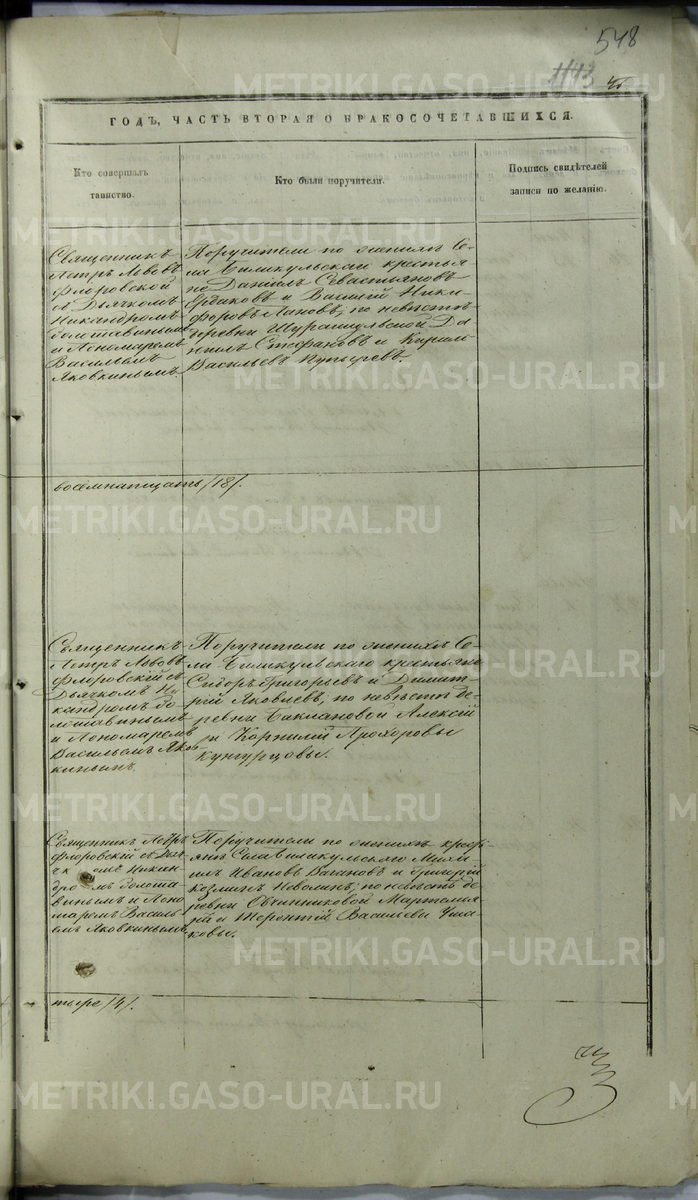 548
1113
ГОДЪ, ЧАСТЬ ВТОРАЯ О БРАКОСОЧЕТАВШИХСЯ.
Кто совершалъ
таинство.
Кто были поручители.
Подпись свидѣтелей
записи по желанію.
Священникъ
Петръ Львовъ
Флоровской
съ Дьячкомъ
Никандромъ
и Пономаремъ
Васильемъ
Яковкинымъ.
Поручители по женихѣ Се-
ла Биликульскаи крестья-
не Данилъ Севастьяновъ
и Василій Ники-
форовъ Пановъ, по невѣстѣ
деревни Да-
нилъ Стефановъ и Кирилъ
Васильевъ Пупыревъ.
восемнатцать /18/.
Священникъ
Петръ Львовъ
Флоровскій съ
Дьячкомъ Ни-
кандромъ Бо-
лоставинымъ
и Пономаремъ
Васильемъ Яков-
кинымъ.
Поручители по женихѣ Се-
ла Биликульскаго крестьяне
Сидоръ Григорьевъ и Димит-
рій Яковлевъ, по невѣстѣ де-
ревни Баклановой Алексій
и Корнилій Прохоровы
Кунгурцовы.
Священникъ Петръ
Флоровскій съ Дья-
чкомъ Никан-
дромъ Болоста-
винымъ и Поно-
маремъ Василь-
емъ Яковкинымъ
Поручители по женихѣ крестья-
янъ Села Биликульскаго Миха-
илъ Ивановъ Вагановъ и Григорій
Козминъ Неволинъ; по невѣстѣ де-
ревни Овчинниковой Мартемія-
нъ и Терентій Васильевы Уша-
ковы.
тыре /4/.
METRIKI.GASO-URAL.RU